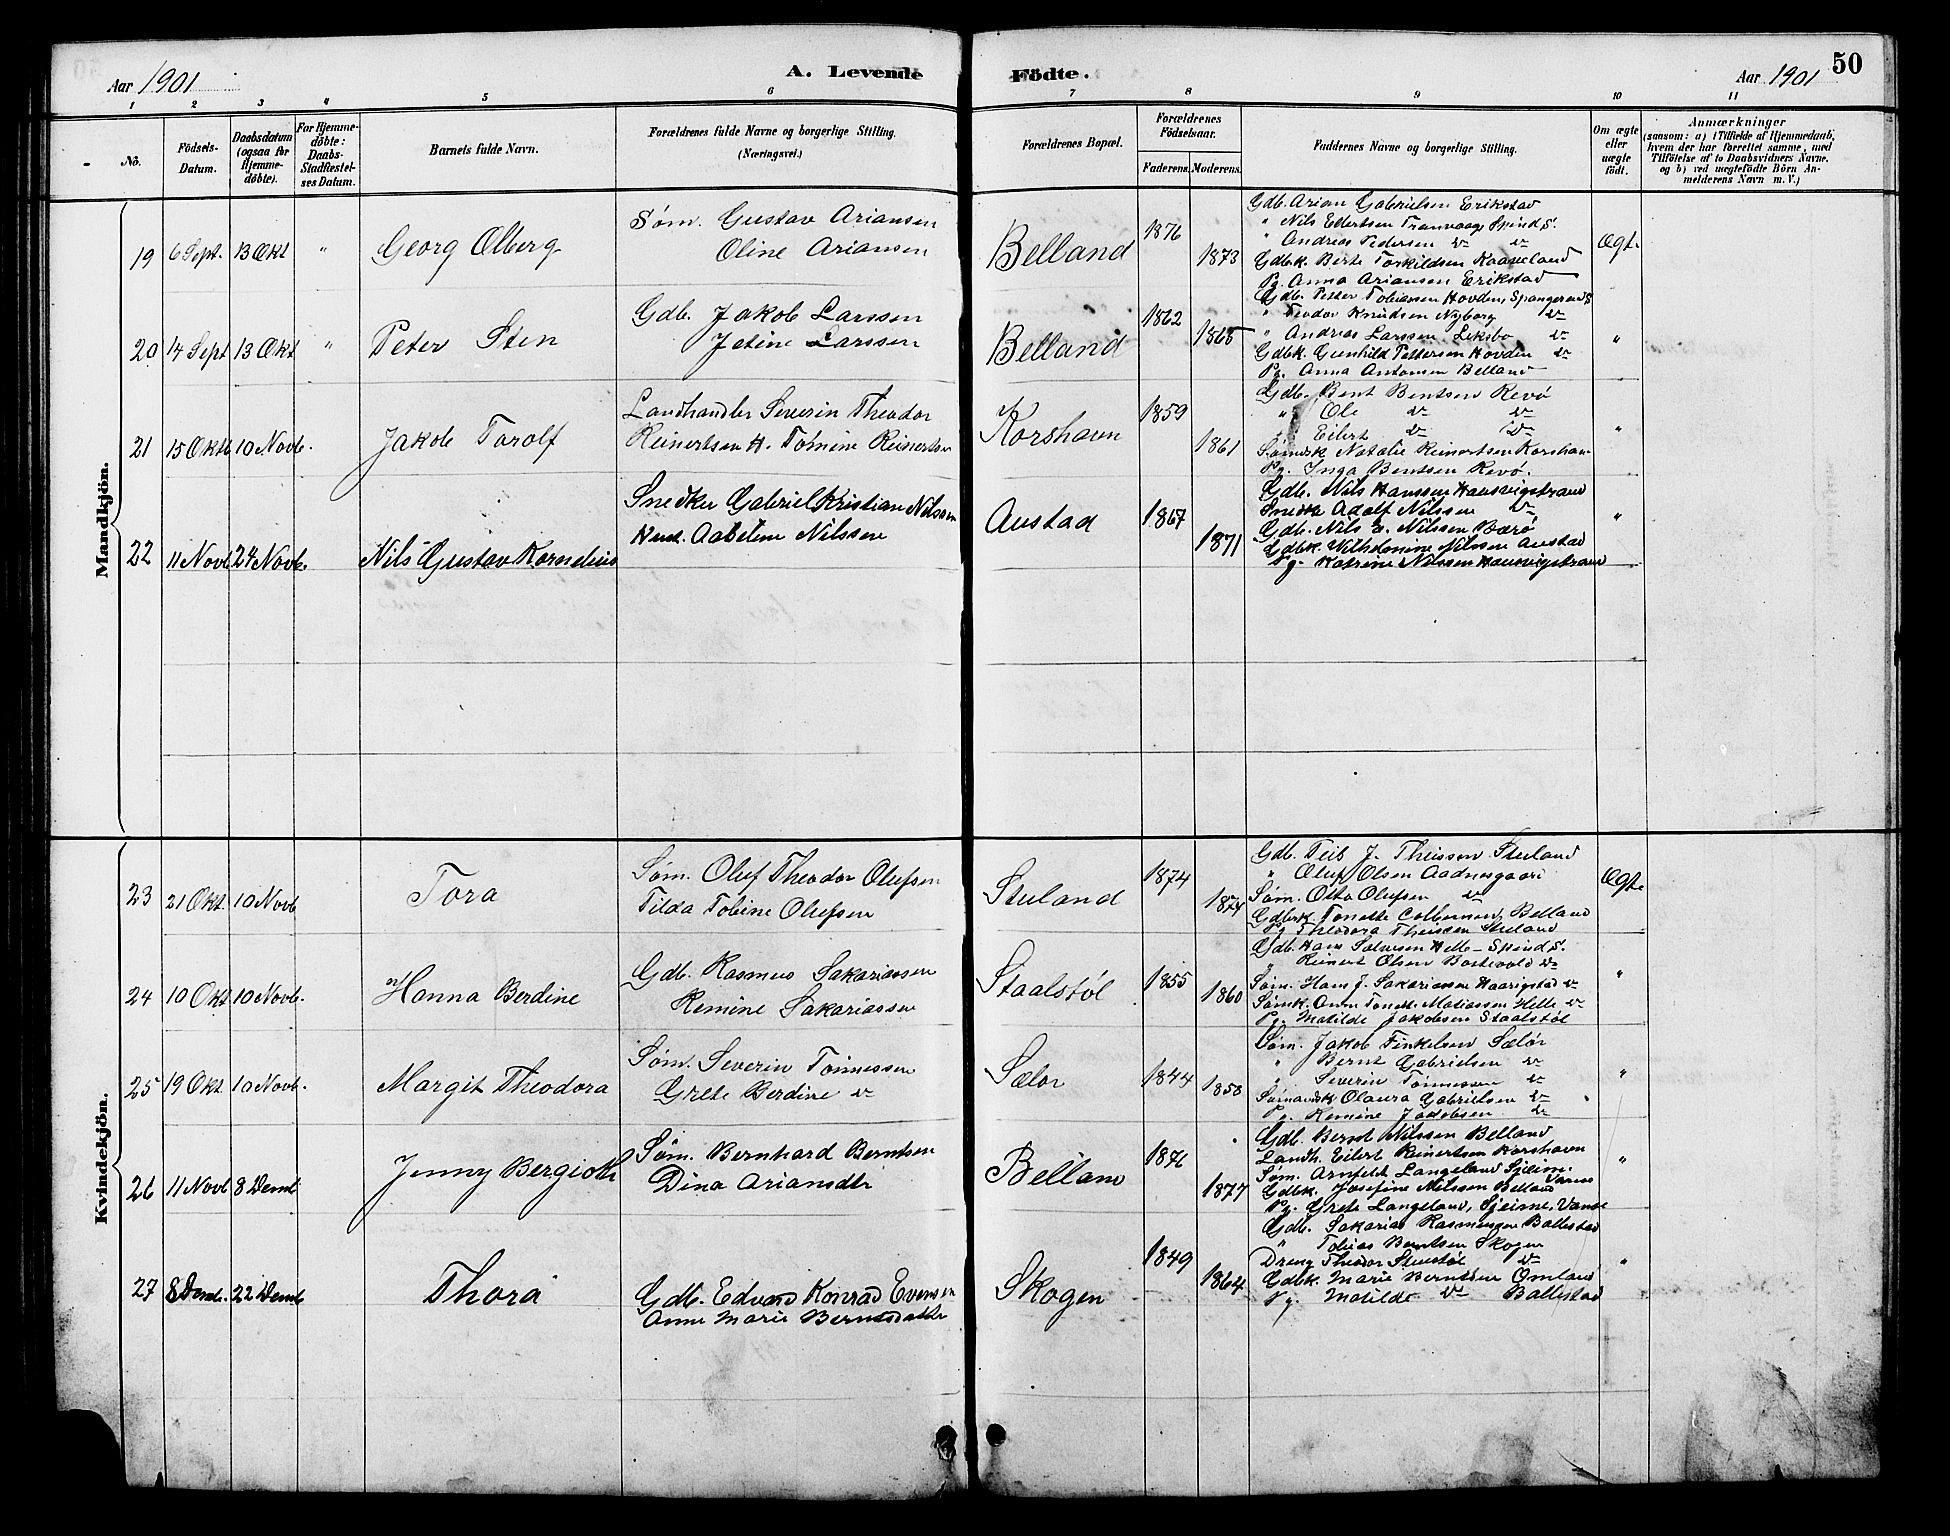 Aar 1901
A. Levende
Fødte.
Aar 1901
50
1 2 3 4 5 6 7 8 9 10 11
No.
Födsels-Datum.
Daabsdatum (ogsaa for Hjemme-döbte).
For Hjemme-döbte: Daabs-Stadfæstel-ses Datum.
Barnets fulde Navn.
Forældrenes fulde Navne og borgerlige Stilling.
(Næringsvei.)
Forældrenes Bopæl.
Forældrenes Födselsaar.
Faderens. Moderens.
Faddernes Navne og borgerlige Stilling.
Om ægte eller uægte født.
Anmærkninger
(saasom: a) i Tilfælde af Hjemmedaab,
hvem der har forrettet samme, med
Tilföielse af to Daabsvidners Navne.
og b) ved uægtefödte Börn An-
melderens Navn m. V.)
Mandkjön.
19 6 Sept. 13 Okt " Georg Olberg
Søm. Gustav Ariansen
Oline Ariansen
Belland 1876 1873
Gdb. Arian Gabrielsen Erikstad
" Nils Eilertsen Tranvaag Spind S.
" Andreas Pedersen do do
Gdbk. Berte Torkildsen Kaaveland
Pg. Anna Ariansen Erikstad
Ægt.
20 14 Sept 13 Okt " Peter Sten
Gdb. Jakob Larssen
Jetine Larssen
Belland 1862 1865
Gdb. Petter Tobiassen Hovden, Spangereid S
" Teodor Knudsen Nyborg do
" Andreas Larssen Leksbo do
Gdbk. Gunhild Pettersen Hovden do
Pg. Anna Antonsen Belland
"
21 15 Okt 10 Novb. Jakob Torolf
Landhandler Severin Theodor
Reinertsen H. Tømine Reinertsen
Korshavn 1859 1861
Gdb. Bent Bentsen Revø
" Ole do do
" Eilert do do
Sømdsk Natalie Reinertsen Korshavn
Pg. Inga Bentsen Revø.
"
22 11 Novb 24 Novb. Nils Gustav Kornelius
Snedker Gabriel Kristian Nilssen
Hust. Aabeline Nilssen
Austad 1867 1871
Gdb. Nils Hanssen Hausvigstrand
Snedk Adolf Nilssen do
Gdb. Nils Nilssen Barø
Gdbk. Wilhelmine Nilssen Austad
Pg. Katrine Nilssen Hausvigstrand
"
Kvindekjön.
23 21 Okt. 10 Novb Tora
Søm. Oluf Theodor Olufsen
Tilda Tobine Olufsen
Stuland 1874 1874
Gdb. Teis J. Theissen Stuland
" Oluf Olsen Aadnesgaard
Søm. Otto Olufsen do
Gdbrk. Tonette Colbensen, Belland
Pg Theodora Theissen Stuland
Ægte
24 10 Okt 10 Novb. Hanna Berdine
Gdb. Rasmus Sakariassen
Remine Sakariassen
Staalstøl 1855 1860
Gdb. Hans Salvesen Helle Spind S.
" Reinert Olsen do
Søm. Hans J. Sakariassen Haarigstad do
Sømk. Anne Tonette Matiassen Helle do
Pg. Matilde Jakobsen Staalstøl
"
25 19 Okt. 10 Novb. Margit Theodora
Søm. Severin Tønnessen
Grete Berdine do
Sælør 1844 1858
Søm. Jakob Finkelsen Sælør
" Bernt Gabrielsen do
" Severin Tønnessen do
Sømandsk Olaura Gabrielsen do
Pg. Remine Jakobsen do
"
26 11 Novb 8 Demb Jenny Bergioth
Søm. Bernhard Berntsen
Dina Ariansdtr
Belland 1876 1877
Gdb. Bernt Nilssen Belland
Landh. Eilert Reinertsen Korshavn
Søm. Arnfeldt Langeland Sjeim. Vanse
Gdbk. Josefine Nilssen Belland
Pg. Grete Langeland, Sjeime, Vanse
"
27 8 Demb. 22 Demb Thora
Gdb. Edvard Konrad Evensen
Anne Marie Berntsdatter
Skogen 1849 1864
Gdb. Sakarias Rasmussen Ballestad
" Tobias Berntsen Skogen
Dreng Theodor do
Gdbk. Marie Berntsen Omland
Pg. Matilde do Ballestad
"